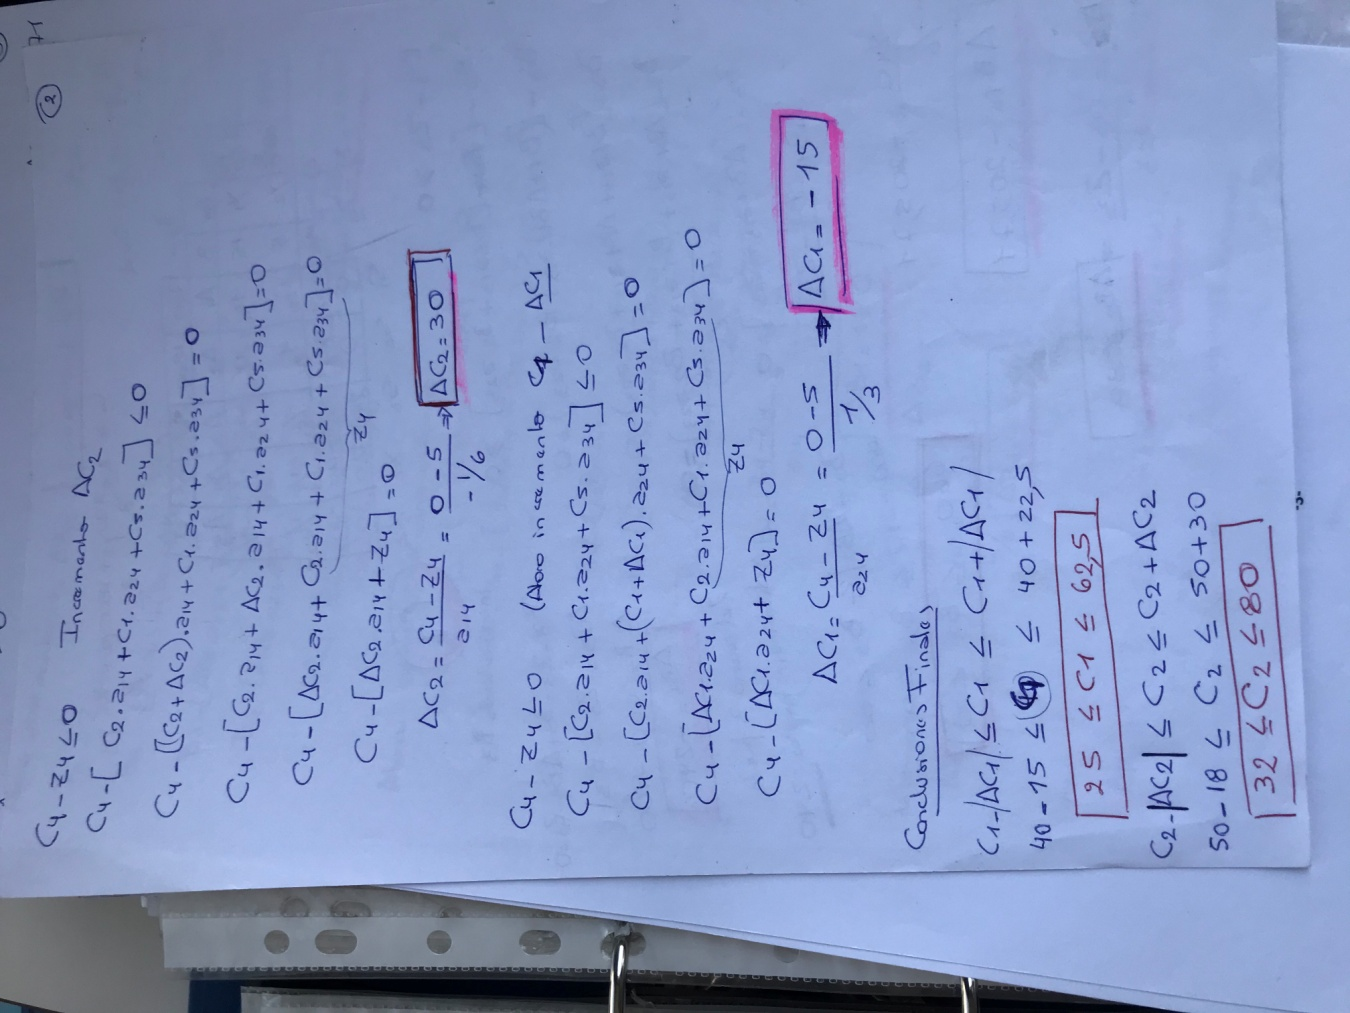 71
2
C4 - Z4 ≤ 0 Incremento ΔC2
C4 - [C2.a14 + C1.a24 + C5.a34] ≤ 0
C4 - [(C2 + ΔC2).a14 + C1.a24 + C5.a34] = 0
C4 - [C2.a14 + ΔC2.a14 + C1.a24 + C5.a34] = 0
C4 - [ΔC2.a14 + C2.a14 + C1.a24 + C5.a34] = 0
Z4
C4 - [ΔC2.a14 + Z4] = 0
ΔC2 = (C4 - Z4)/a14 = (0 - 5)/(-1/6) → ΔC2 = 30
C4 - Z4 ≤ 0 (Ahora incremento ΔC1
C4 - [C2.a14 + C1.a24 + C5.a34] ≤ 0
C4 - [C2.a14 + (C1 + ΔC1).a24 + C5.a34] = 0
C4 - [ΔC1.a24 + C2.a14 + C1.a24 + C5.a34] = 0
Z4
C4 - [ΔC1.a24 + Z4] = 0
ΔC1 = (C4 - Z4)/a24 = (0 - 5)/(1/3) → ΔC1 = -15
Conclusiones Finales
C1 - |ΔC1| ≤ C1 ≤ C1 + |ΔC1|
40 - 15 ≤ C1 ≤ 40 + 22,5
25 ≤ C1 ≤ 62,5
C2 - |ΔC2| ≤ C2 ≤ C2 + ΔC2
50 - 18 ≤ C2 ≤ 50 + 30
32 ≤ C2 ≤ 80